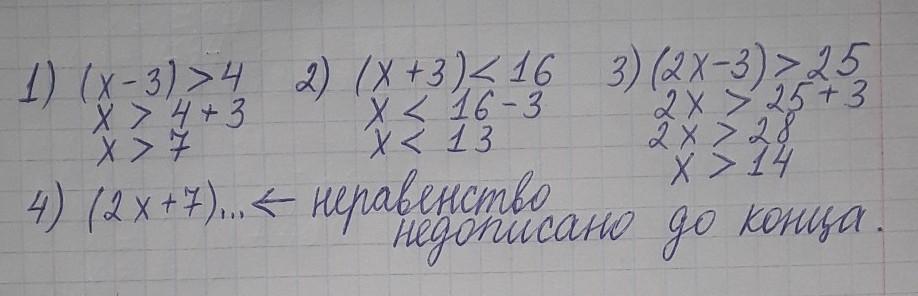 1) (x-3)>4 2) (x+3)<16 3) (2x-3)>25
x > 4+3 x < 16-3 2x > 25+3
x > 7 x < 13 2x > 28
x > 14
4) (2x+7)... ← неравенство
недописано до конца.